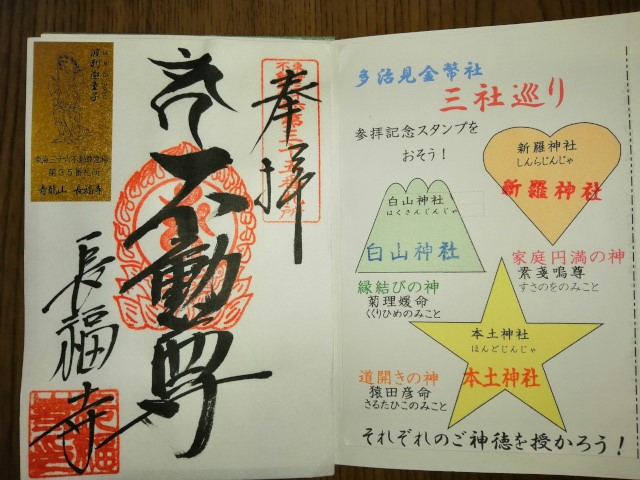 奉拝
不動尊
長福寺
東海三十六不動尊霊場
第35番札所
青龍山 長福寺
多治見金幣社
三社巡り
参拝記念スタンプを
おそう！
新羅神社
しんらじんじゃ
新羅神社
家庭円満の神
素戔嗚尊
すさのをのみこと
白山神社
はくさんじんじゃ
白山神社
縁結びの神
菊理媛命
くくりひめのみこと
本土神社
ほんどじんじゃ
本土神社
道開きの神
猿田彦命
さるたひこのみこと
それぞれのご神徳を授かろう！